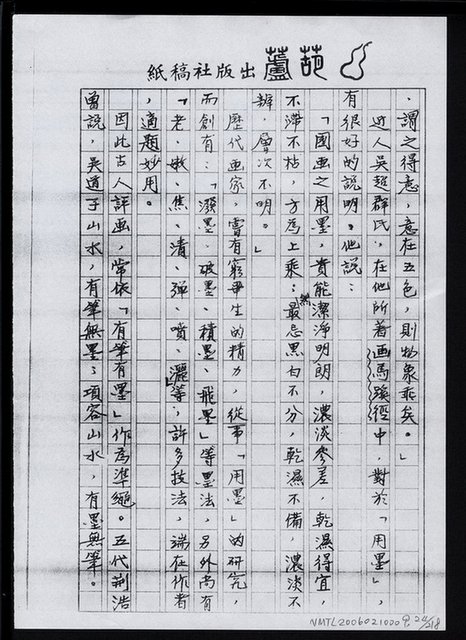 葫蘆出版社稿紙
，謂之得意，意在五色，則物象乖矣。」
近人吳超群氏，在他所著畫馬蹊徑中，對於「用墨」，
有很好的說明。他說：
「國画之用墨，貴能潔淨明朗，濃淡參差，乾濕得宜，
不滯不枯，方為上乘；最忌黑白不分，乾濕不備，濃淡不
辨，層次不明。」
歷代画家，嘗有窮畢生的精力，從事「用墨」的研究，
而創有：「潑墨、破墨、積墨、飛墨」等墨法，另外尚有
「老、嫩、焦、漬、彈、噴、灑」等；許多技法，端在作者
，適題妙用。
因此古人評画，常依「有筆有墨」作為準繩。五代荊浩
曾說，吳道子山水，有筆無墨；項容山水，有墨無筆。
NMTL20060210009 22/218